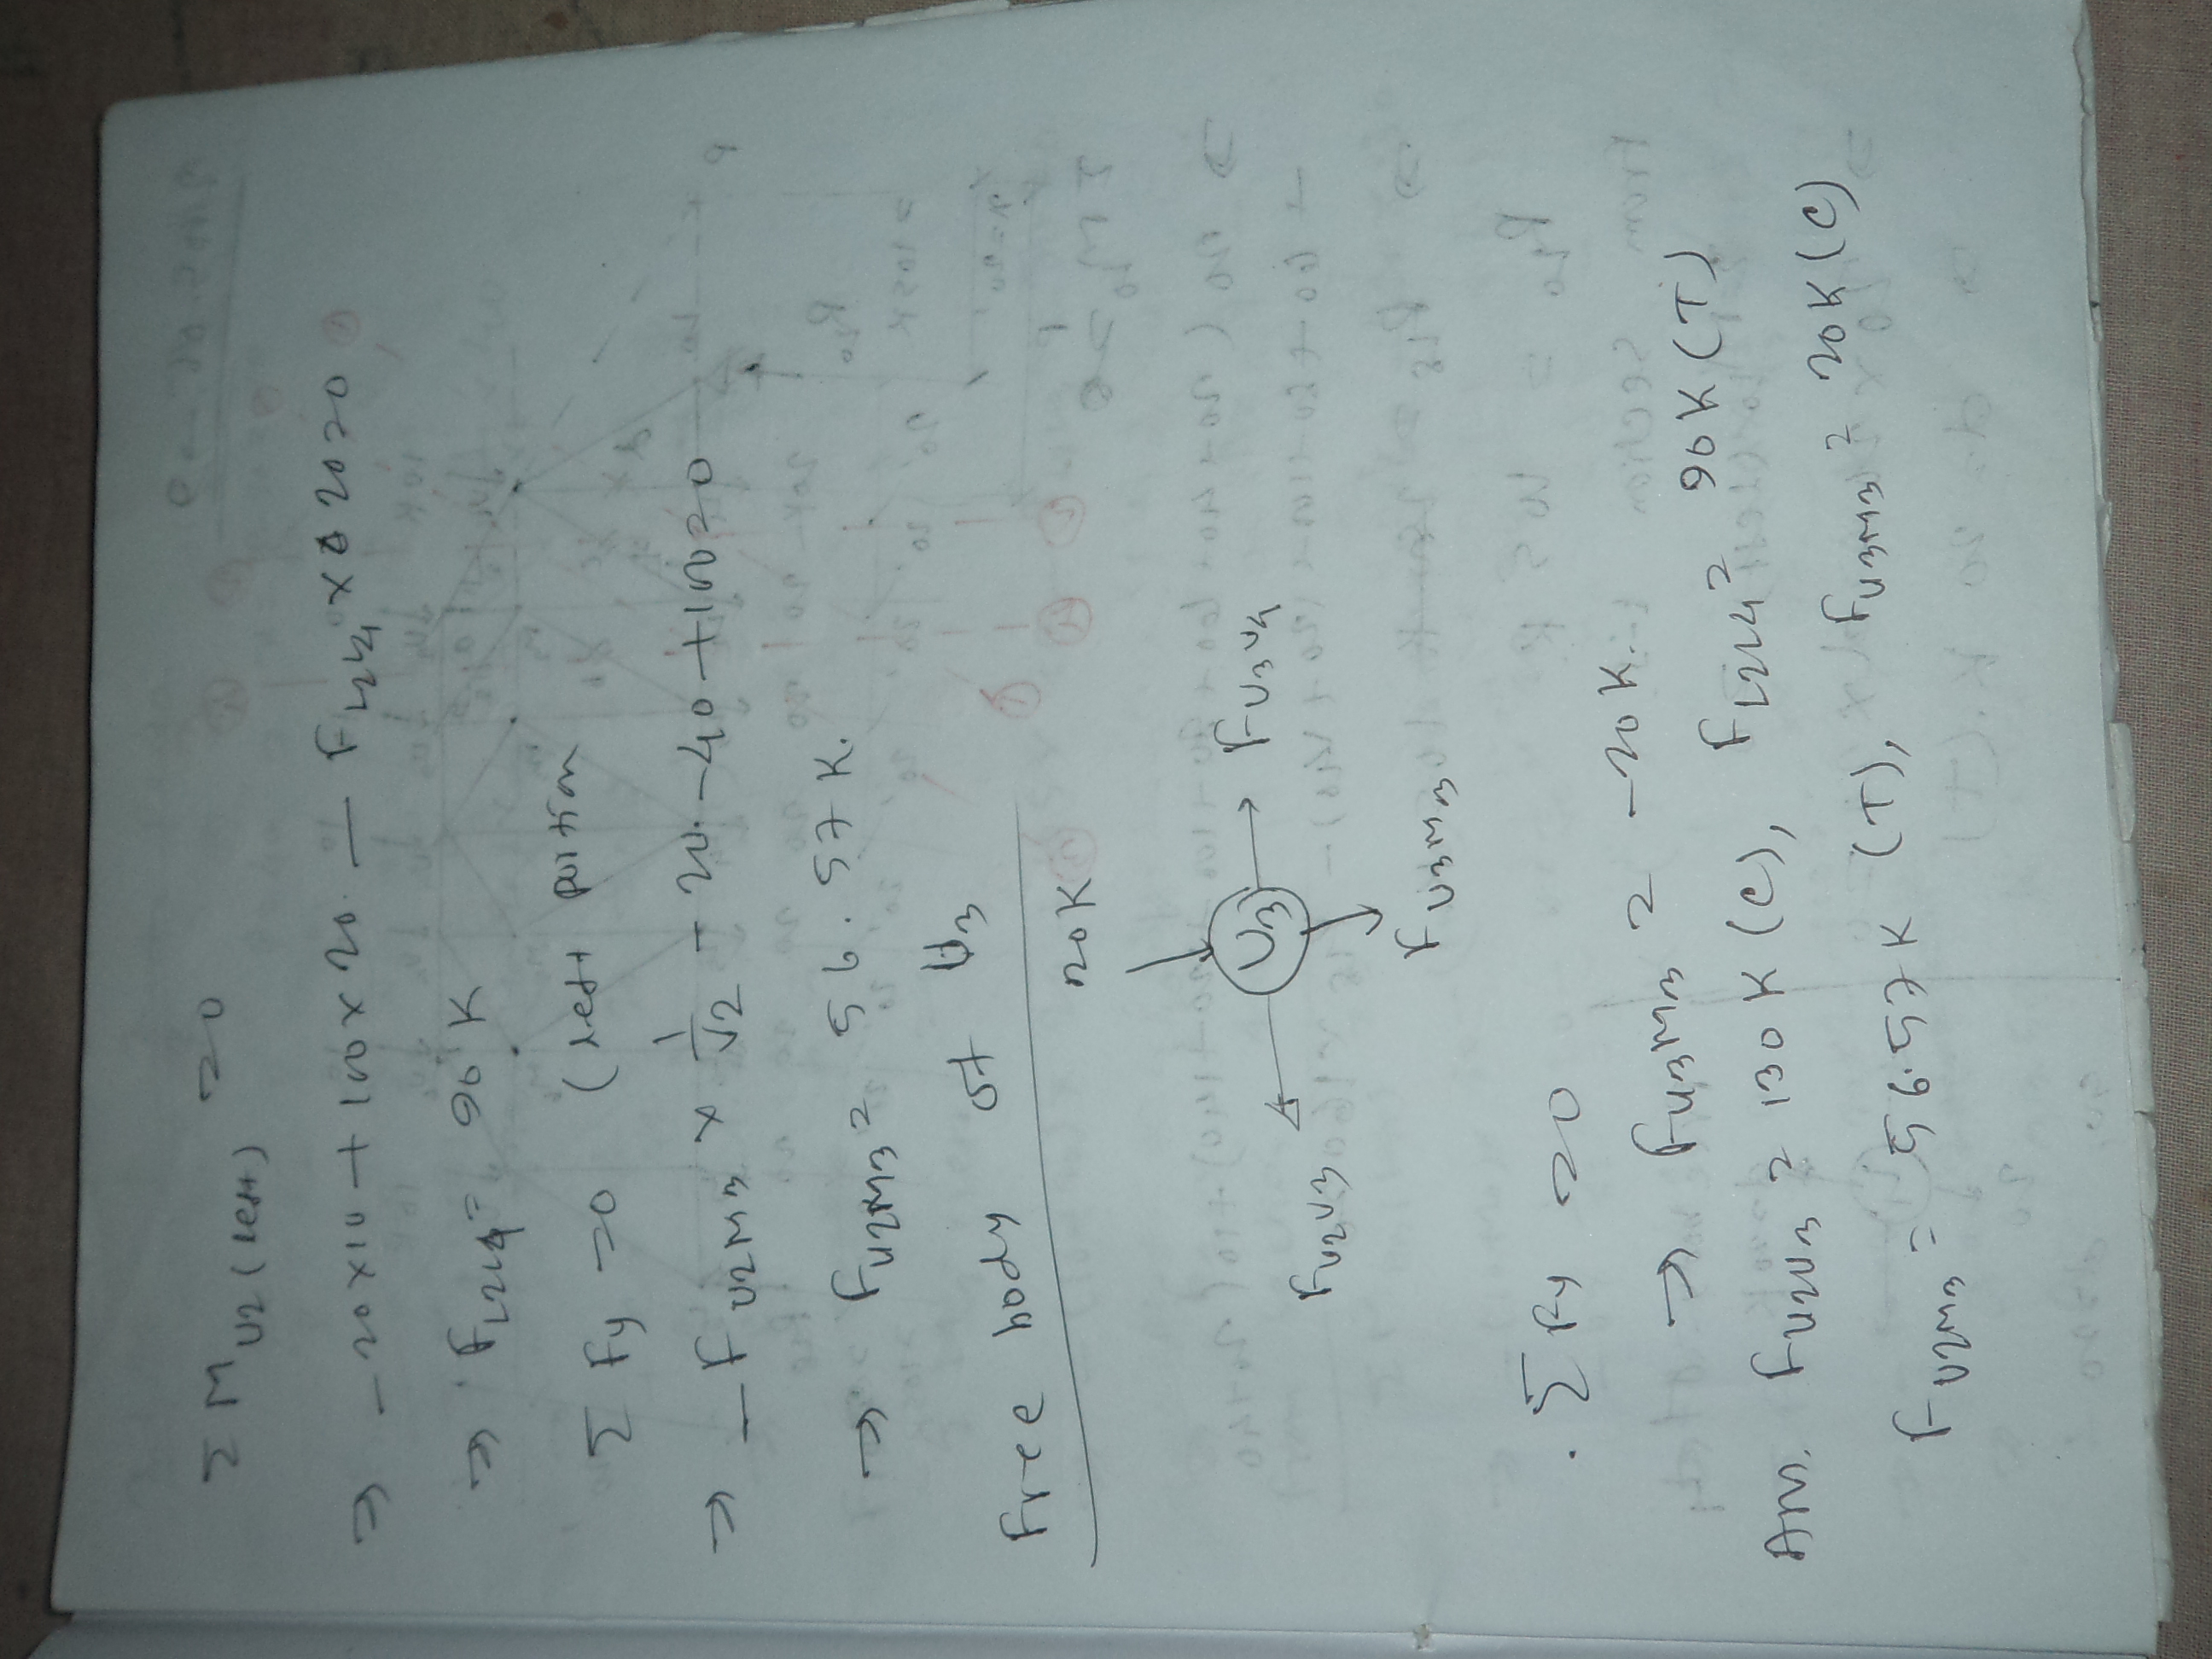 Σ M U2 (left) = 0
⇒ - 20 x 10 + 110 x 20 - F L2L4 x 20 = 0
⇒ F L2L4 = 90 K
Σ Fy = 0 (left portion
⇒ - F U2M3 x 1/√2 - 20 - 40 + 110 = 0
⇒ F U2M3 = 56.57 K.
Free body of U3
20K
F U2U3 U3 F U3U4
F U3M3
Σ Fy = 0
⇒ F U3M3 = -20 K.
Ans. F U2U3 = 130 K (C), F L2L4 = 90K (T)
F U2M3 = 56.57 K (T), F U3M3 = 20K (C)